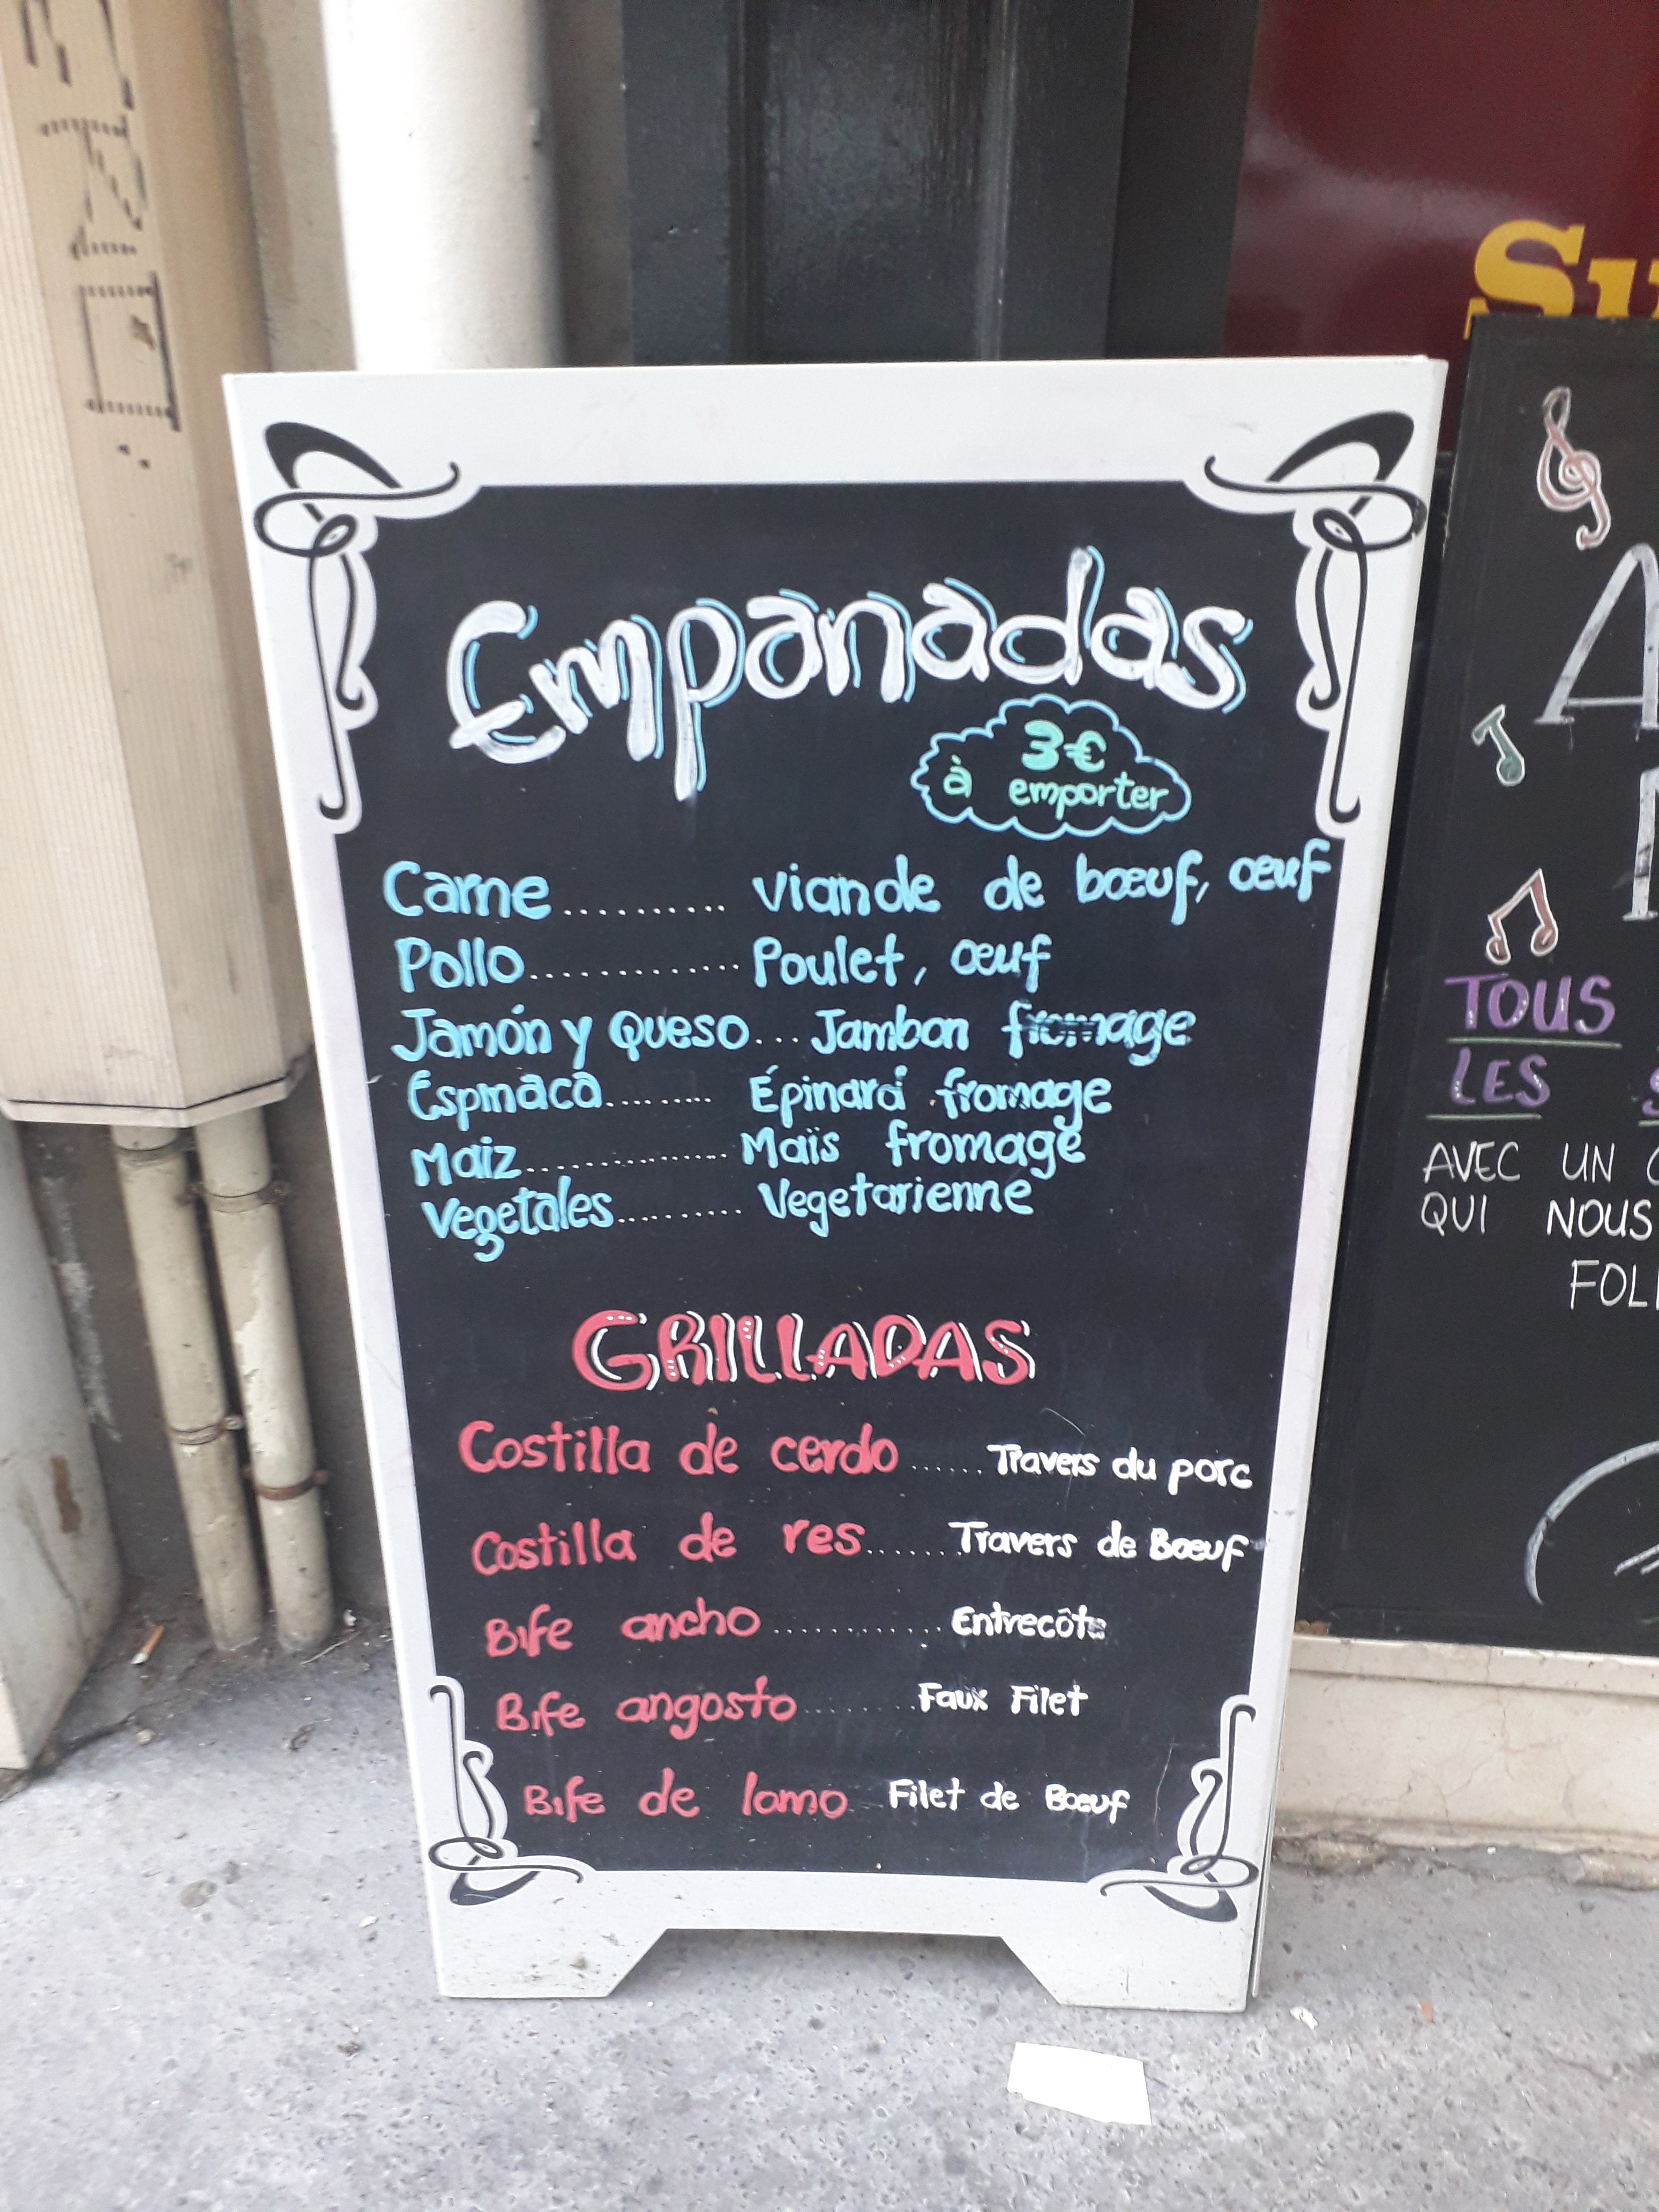 Su
Empanadas
3€
à emporter
Carne.......... viande de bœuf, œuf
Pollo............. Poulet, œuf
Jamón y Queso... Jambon fromage
Espinaca......... Épinard fromage
Maiz............... Maïs fromage
Vegetales.......... Vegetarienne
GRILLADAS
Costilla de cerdo...... Travers du porc
Costilla de res....... Travers de Bœuf
Bife ancho............ Entrecôte
Bife angosto........ Faux Filet
Bife de lomo Filet de Bœuf
TOUS
LES
AVEC UN
QUI NOUS